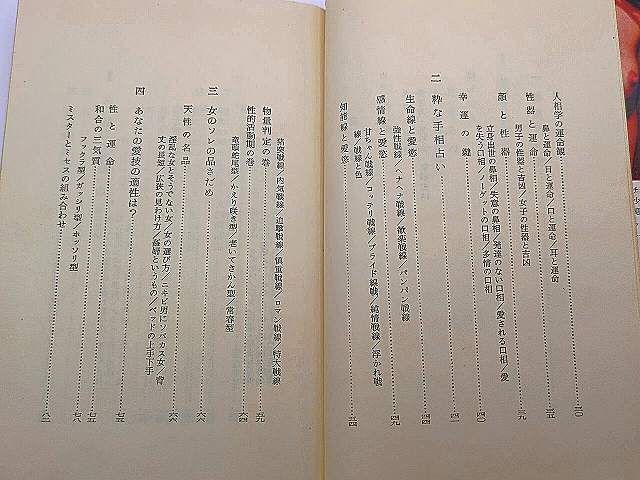 人相学の運命観……三〇
鼻と運命／目と運命／口と運命／耳と運命
性器と運命……三五
男子の性器と吉凶／女子の性器と吉凶
顔と性器……三九
立身出世の鼻相／失意の鼻相／発達のない口相／愛される口相／愛
を失う口相／ノーゲットの口相／多情の口相
幸運の鍵……四〇
二 粋な手相占い……四一
生命線と愛慾……四四
強性戦線／ヘナヘナ戦線／歓楽戦線／パンパン戦線
感情線と愛慾……四九
甘ちゃん戦線／コッテリ戦線／プライド戦線／純情戦線／浮かれ戦
線／戦線と色
知能線と愛慾……五四
猪突戦線／内気戦線／迫撃戦線／慎重戦線／ロマン戦線／特大戦線
物量判定の巻……五九
性的活動期の巻……六四
竜頭蛇尾型／かえり咲き型／老いてさかん型／常春型
三 女のソレの品さだめ……六六
天性の名品……六六
淫乱な女とそうでない女／女の選び方／ニキビ男にソバカス女／背
丈の長短／広狭の見わけ方／姦婦というもの／ベッドの上手下手
四 あなたの愛技の適性は？……七五
性と運命……七五
和合の三気質……七八
フックラ型／ガッシリ型／ホッソリ型
ミスターとミセスの組み合わせ……八二